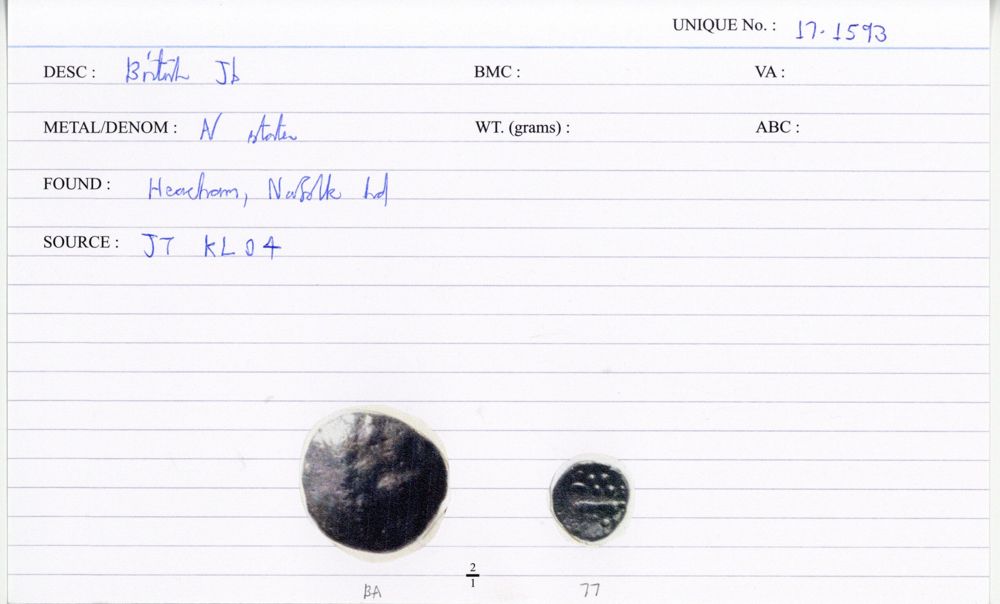 UNIQUE No. : 17-1593
DESC : British Jb BMC : VA :
METAL/DENOM : N stater WT. (grams) : ABC :
FOUND : Heacham, Norfolk hd
SOURCE : JT KL04
2
1
BA 77